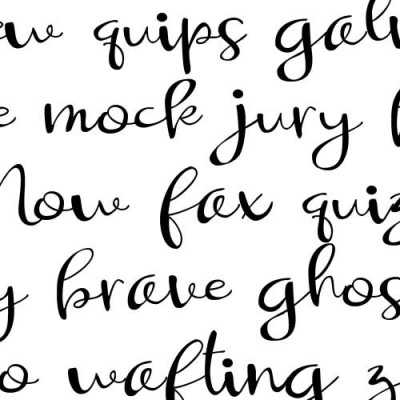 ew quips galv
e mock jury
Now fax quiz
y brave ghos
o wafting z